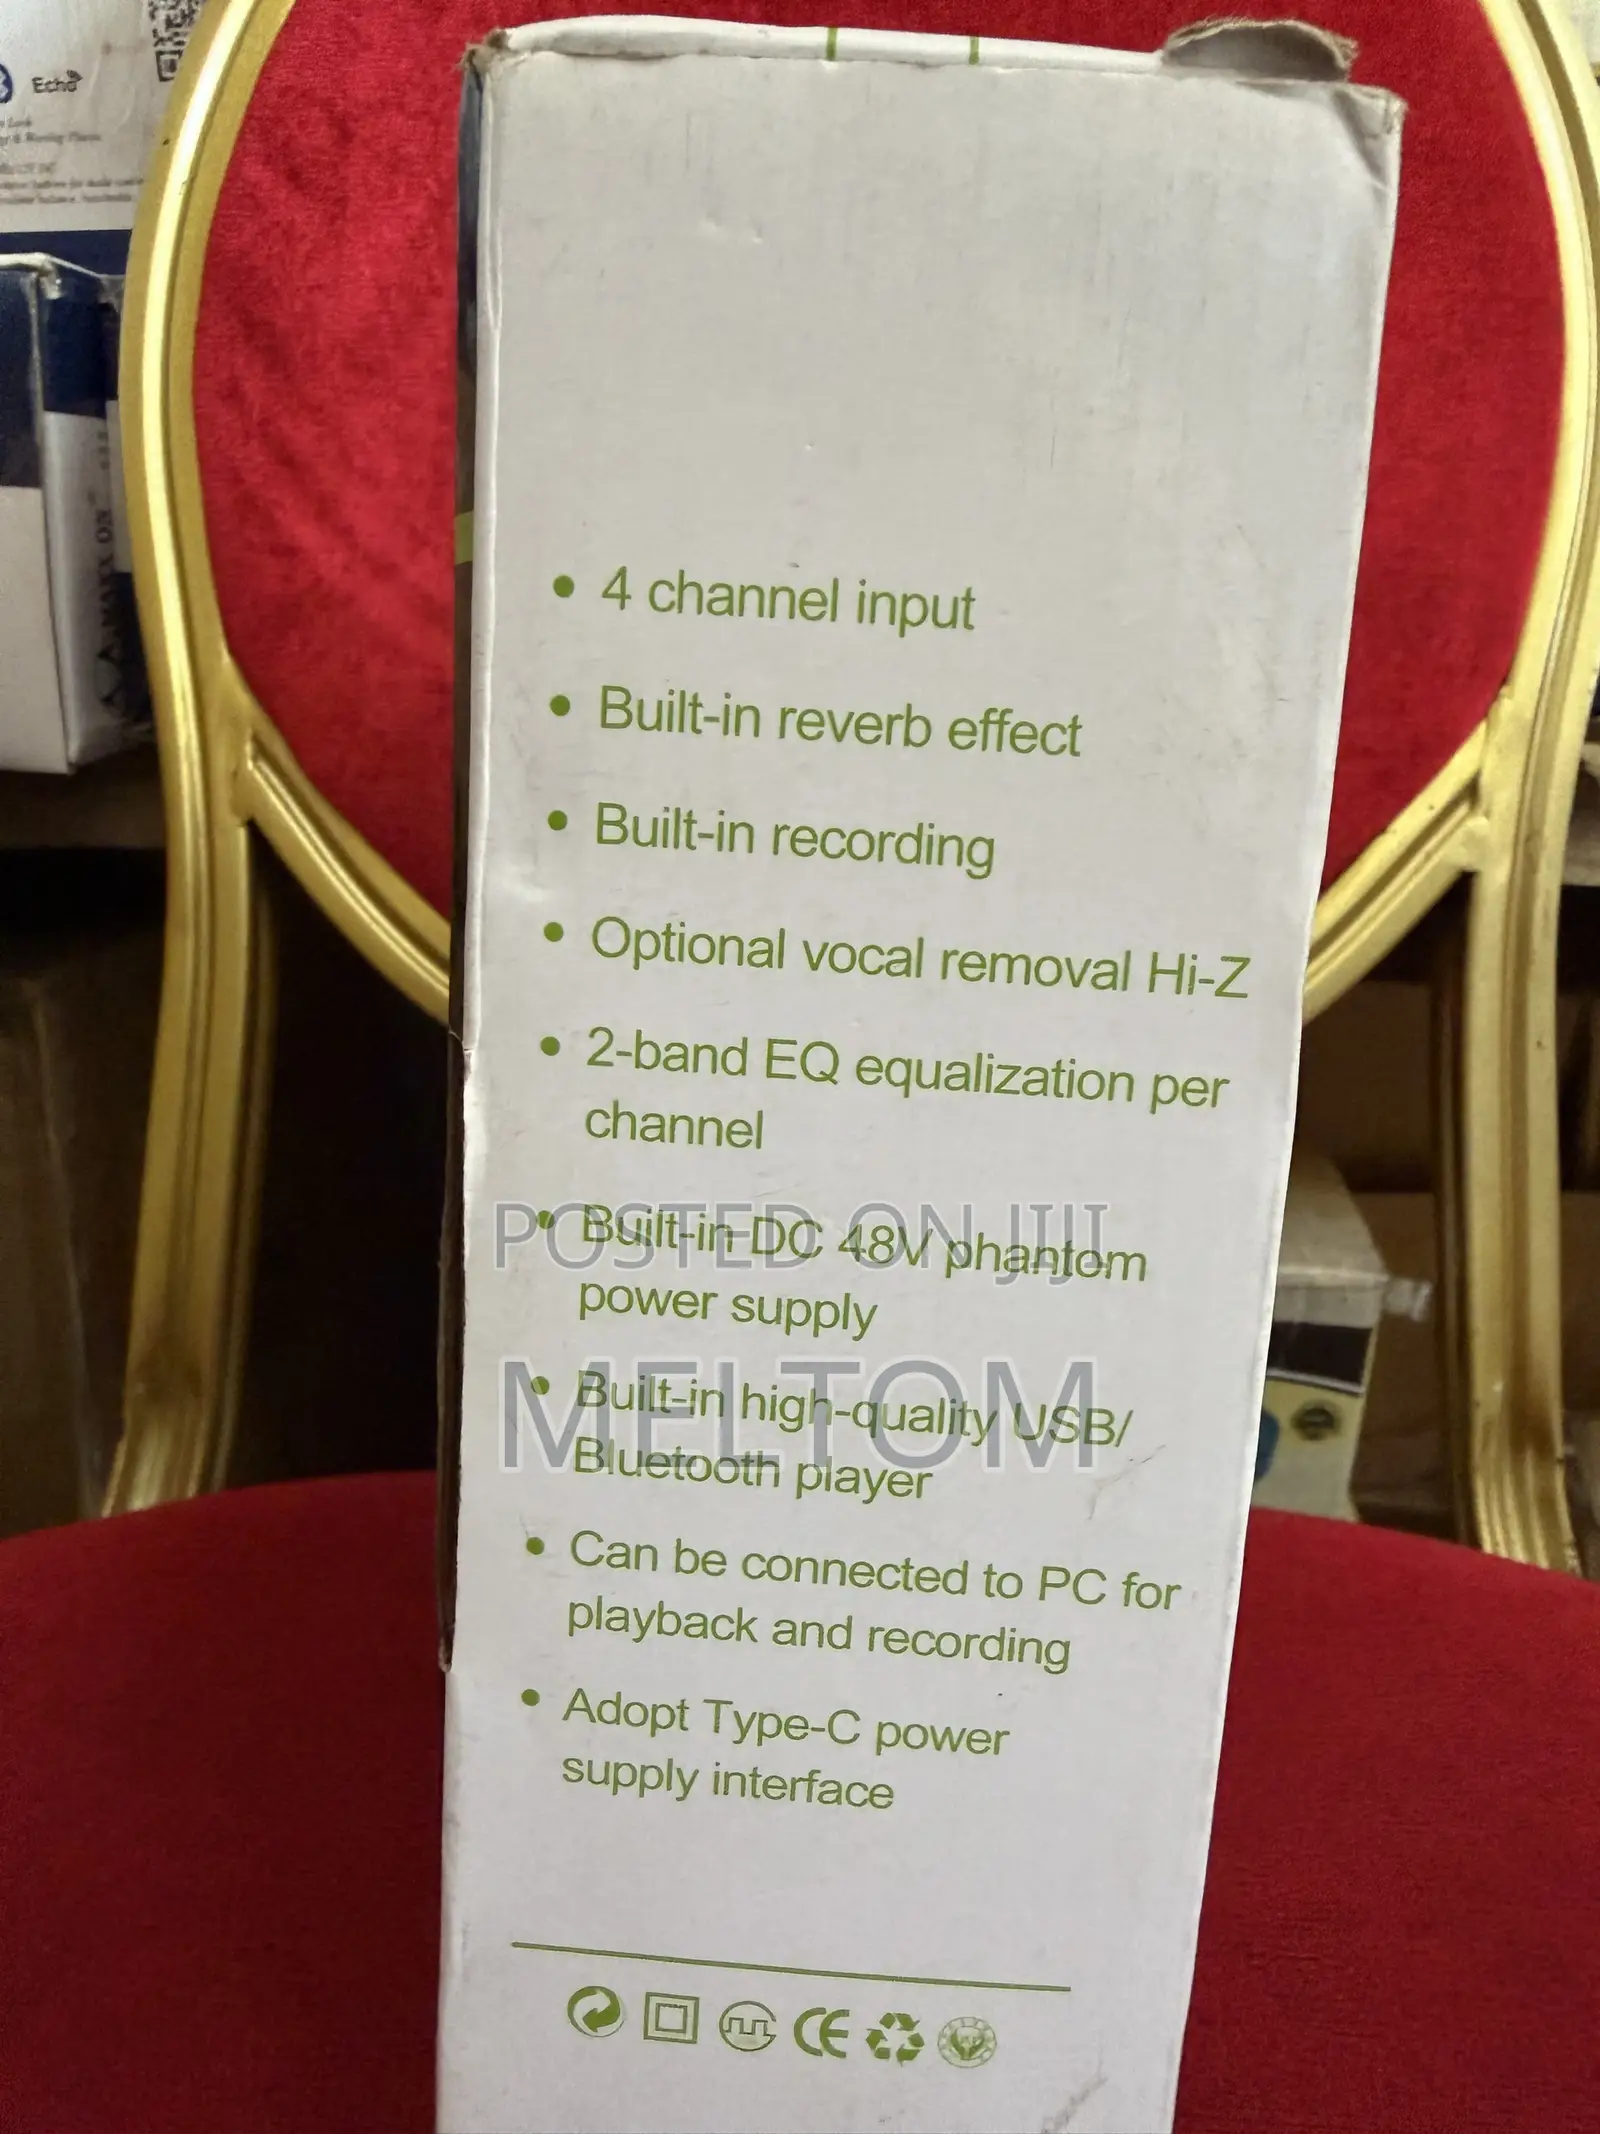 Echo
• 4 channel input
• Built-in reverb effect
• Built-in recording
• Optional vocal removal Hi-Z
• 2-band EQ equalization per
channel
• Built-in DC 48V phantom
power supply
• Built-in high-quality USB/
Bluetooth player
• Can be connected to PC for
playback and recording
• Adopt Type-C power
supply interface
CE
POSTED ON JIJI
MELTOM